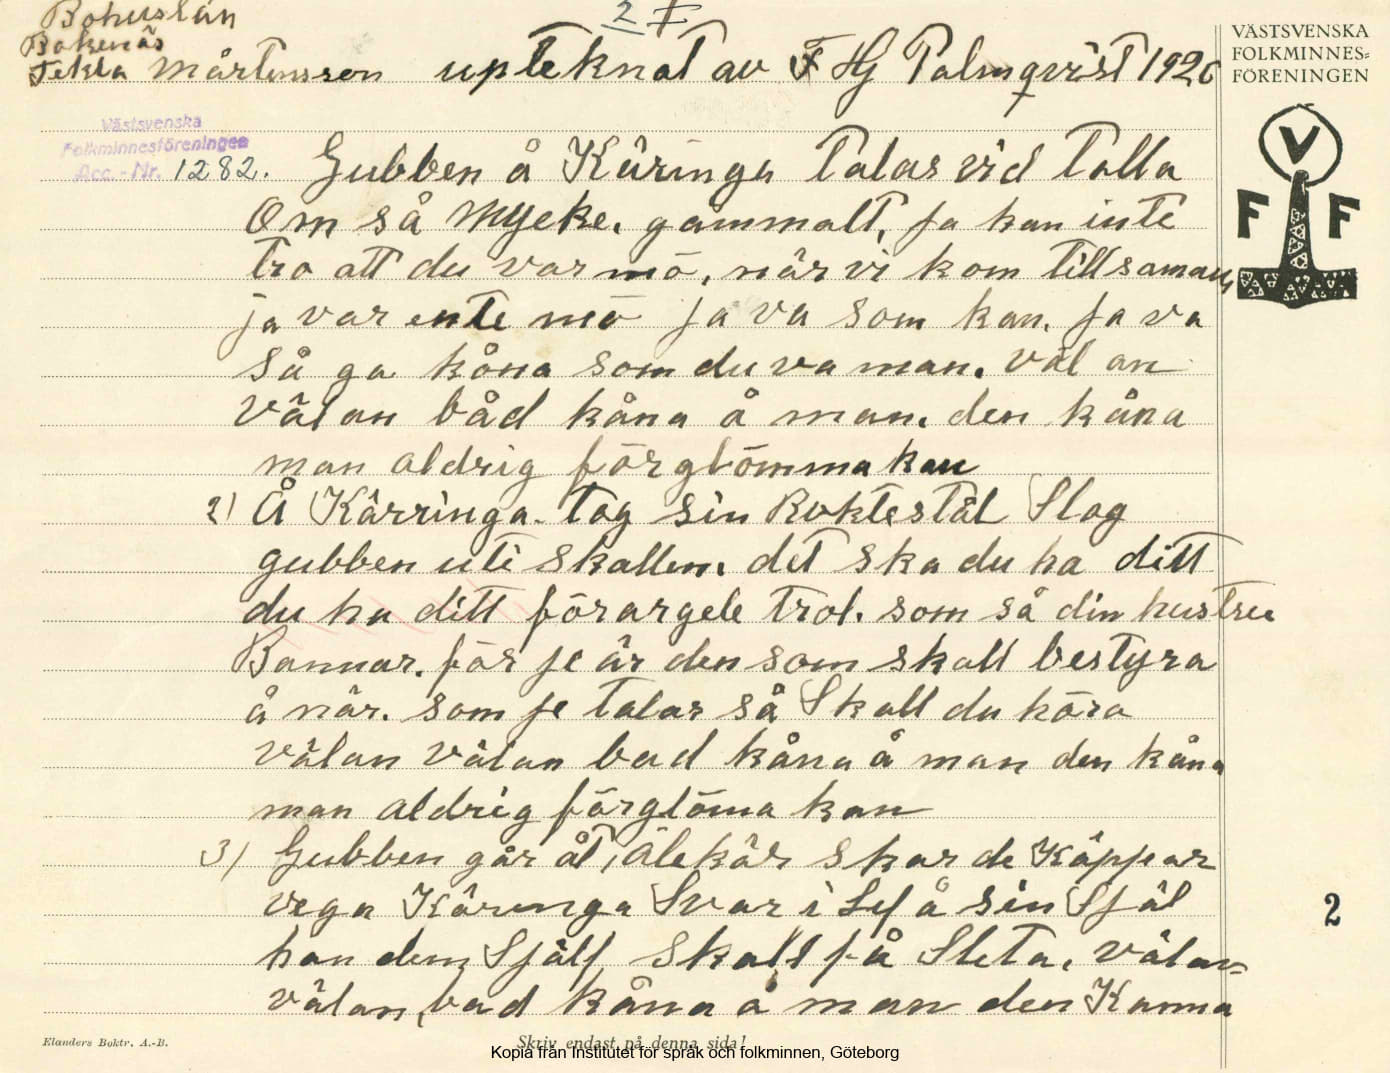 Bohuslän
Bokenäs
Tekla Mårtensson upteknat av F Hj Palmqvist 1926
2 I
VÄSTSVENSKA
FOLKMINNES=
FÖRENINGEN
V
F F
Västsvenska
Folkminnesföreningen
Acc. - Nr. 1282.
Gubben å Käringa talas vid talla
Om så Mycke. gammalt, ja kan inte
tro att du var mö, när vi kom tillsamans
ja var ente mö ja va som kan. ja va
så ga kåna som du va man. väl an
välan båd kåna å man. den kåna
man aldrig förglömma kan
2) Å Kärringa. tog sin Roktestål Slog
gubben uti skallen. det ska du ha ditt
du ha ditt förargele trol. som så din hustru
Bannar. för je är den som skall bestyra
å när. som je talar så Skall du höra
välan välan bad kåna å man den kåna
man aldrig förglöma kan
3) Gubben går åt, Älekär skar de Käppar
vega Käringa Svar i Lef å sin Själ
han dem Själf skall få Sleta. välan
välan, bad kåna å man den Kanna
2
Elanders Boktr. A.-B.
Skriv endast på denna sida!
Kopia från Institutet för språk och folkminnen, Göteborg